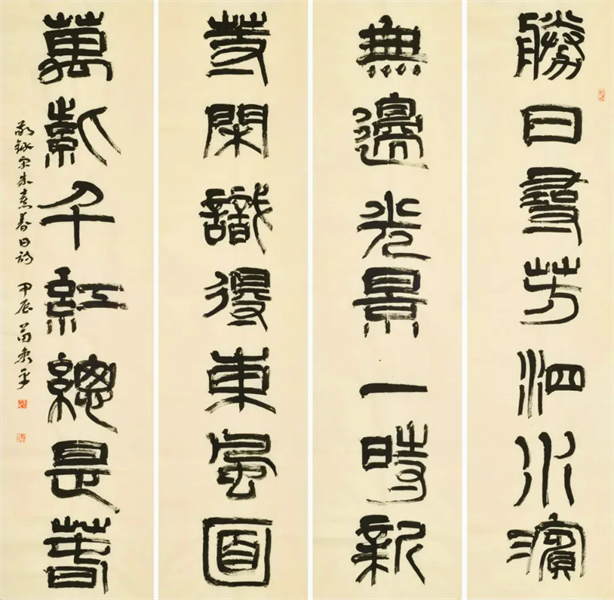 勝日尋芳泗水濱
無邊光景一時新
等閑識得東風面
萬紫千紅總是春
錄宋朱熹春日詩 甲辰